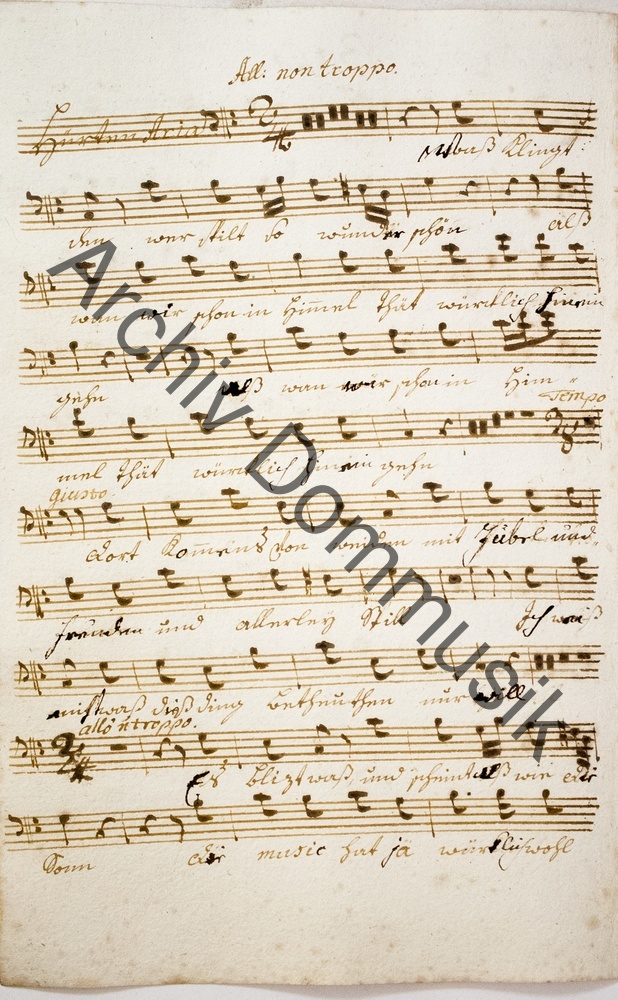 All: non troppo.
Hürten Aria
Waß Klingt
den wer stilt so wunder schön alß
wan wir schon in Himmel thät würcklich hinein
gehn alß wan wir schon in Him-
Tempo
mel thät würcklich hinein gehn
giusto
dort Komens von weiten mit Jubel und
freuden und allerley Still Ich weiß
nicht waß diß ding betheuthen nur will
allo ñ troppo.
Es blizt waß und scheint alß wie die
Sonn die music hat ja würklich wohl
Archiv Dommusik